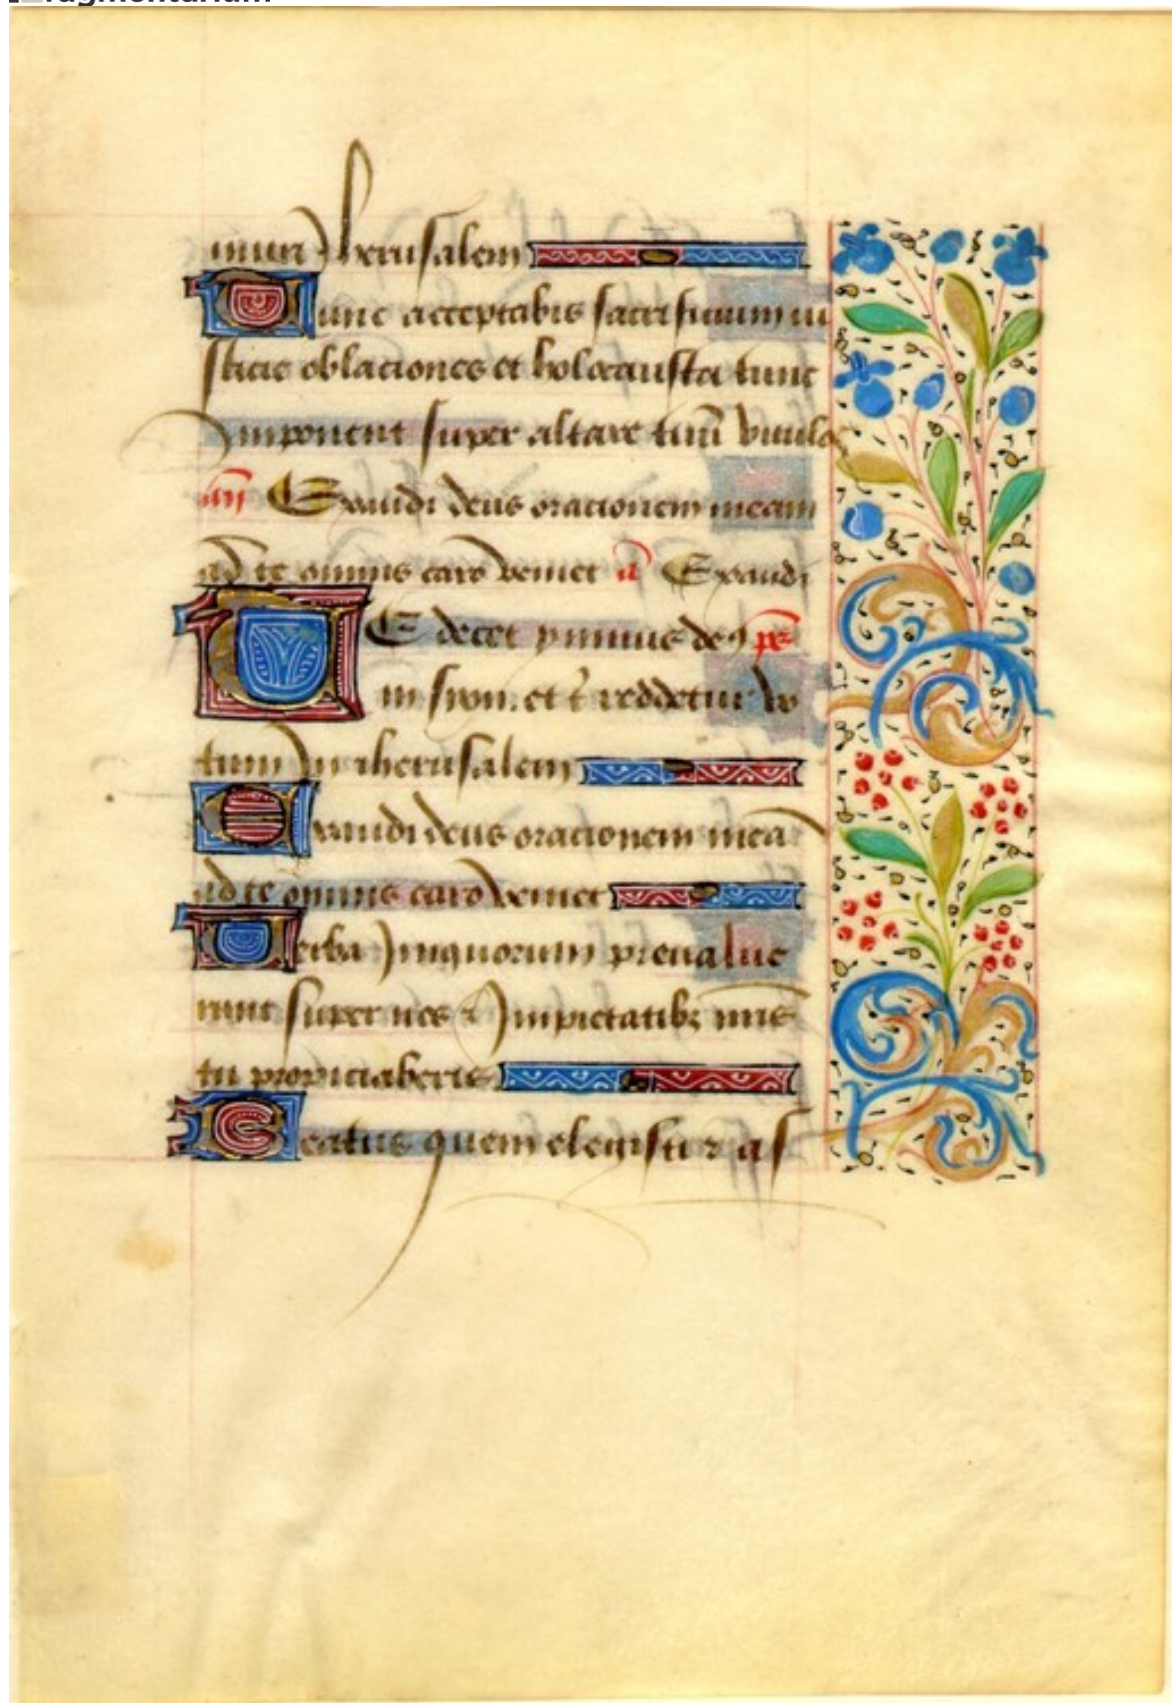 muri Iherusalem
Tunc acceptabis sacrificium iu
sticie oblaciones et holocausta tunc
Imponent super altare tuū vitulos
Exaudi deus orationem meam
ad te omnis caro veniet a Exaudi
TE decet ymnus deꝰ ps
in sion. et t̄ reddetur vo
tum In iherusalem
Exaudi deus orationem meā
ad te omnis caro veniet
Verba Iniquorum preualue
runt super nos ⁊ Impietatibꝫ nr̄is
tu propiciaberis
Beatus quem elegisti ⁊ as